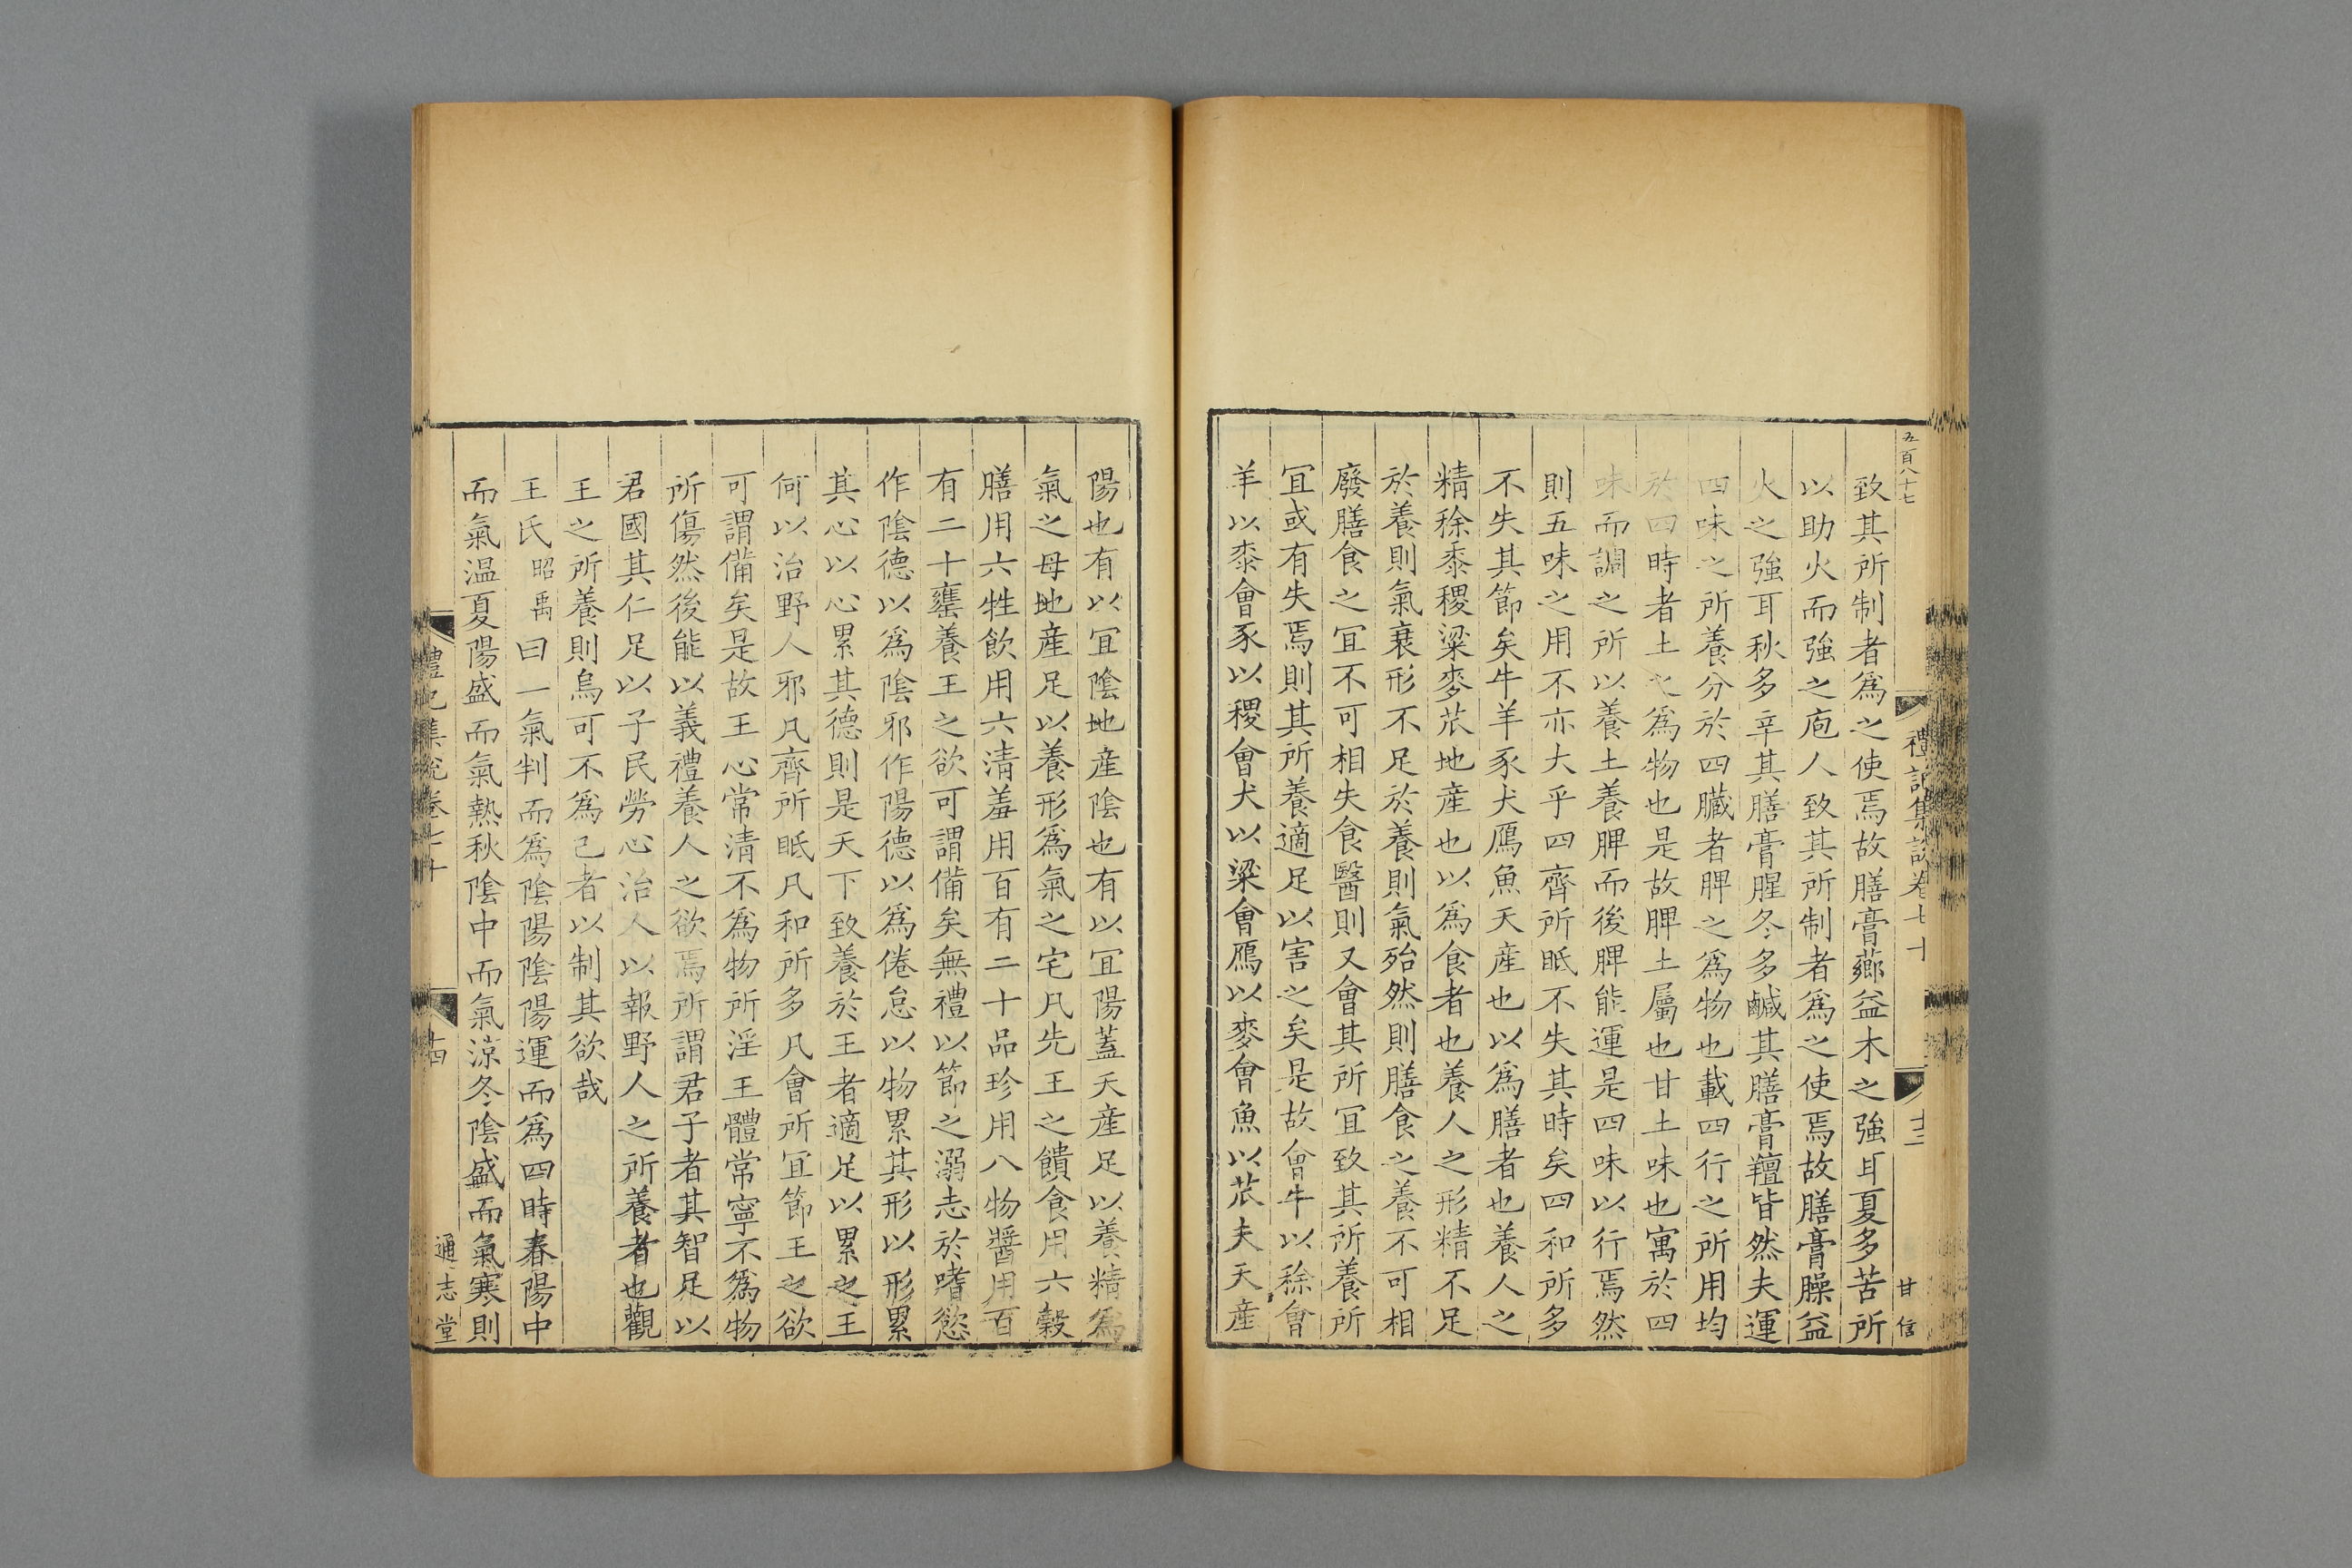 五百八十七
禮記集說卷七十
十三
甘信
致其所制者爲之使焉故膳膏薌益木之強耳夏多苦所
以助火而強之庖人致其所制者爲之使焉故膳膏臊益
火之強耳秋多辛其膳膏腥冬多鹹其膳膏羶皆然夫運
四味之所養分於四臟者脾之爲物也載四行之所用均
於四時者土之爲物也是故脾土屬也甘土味也寓於四
味而調之所以養土養脾而後脾能運是四味以行焉然
則五味之用不亦大乎四齊所眡不失其時矣四和所多
不失其節矣牛羊豕犬鴈魚天產也以爲膳者也養人之
精稌黍稷粱麥苽地產也以爲食者也養人之形精不足
於養則氣衰形不足於養則氣殆然則膳食之養不可相
廢膳食之冝不可相失食醫則又會其所冝致其所養所
冝或有失焉則其所養適足以害之矣是故會牛以稌會
羊以黍會豕以稷會犬以粱會鴈以麥會魚以苽夫天產
陽也有以冝陰地產陰也有以冝陽蓋天產足以養精爲
氣之母地產足以養形爲氣之宅凡先王之饋食用六穀
膳用六牲飲用六清羞用百有二十品珍用八物醬用百
有二十罋養王之欲可謂備矣無禮以節之溺志於嗜慾
作陰德以爲陰邪作陽德以爲倦怠以物累其形以形累
其心以心累其德則是天下致養於王者適足以累之王
何以治野人邪凡齊所眡凡和所多凡會所冝節王之欲
可謂備矣是故王心常清不爲物所淫王體常寧不爲物
所傷然後能以義禮養人之欲焉所謂君子者其智足以
君國其仁足以子民勞心治人以報野人之所養者也觀
王之所養則烏可不爲己者以制其欲哉
王氏昭禹曰一氣判而爲陰陽陰陽運而爲四時春陽中
而氣温夏陽盛而氣熱秋陰中而氣涼冬陰盛而氣寒則
禮記集說卷七十
十四
通志堂